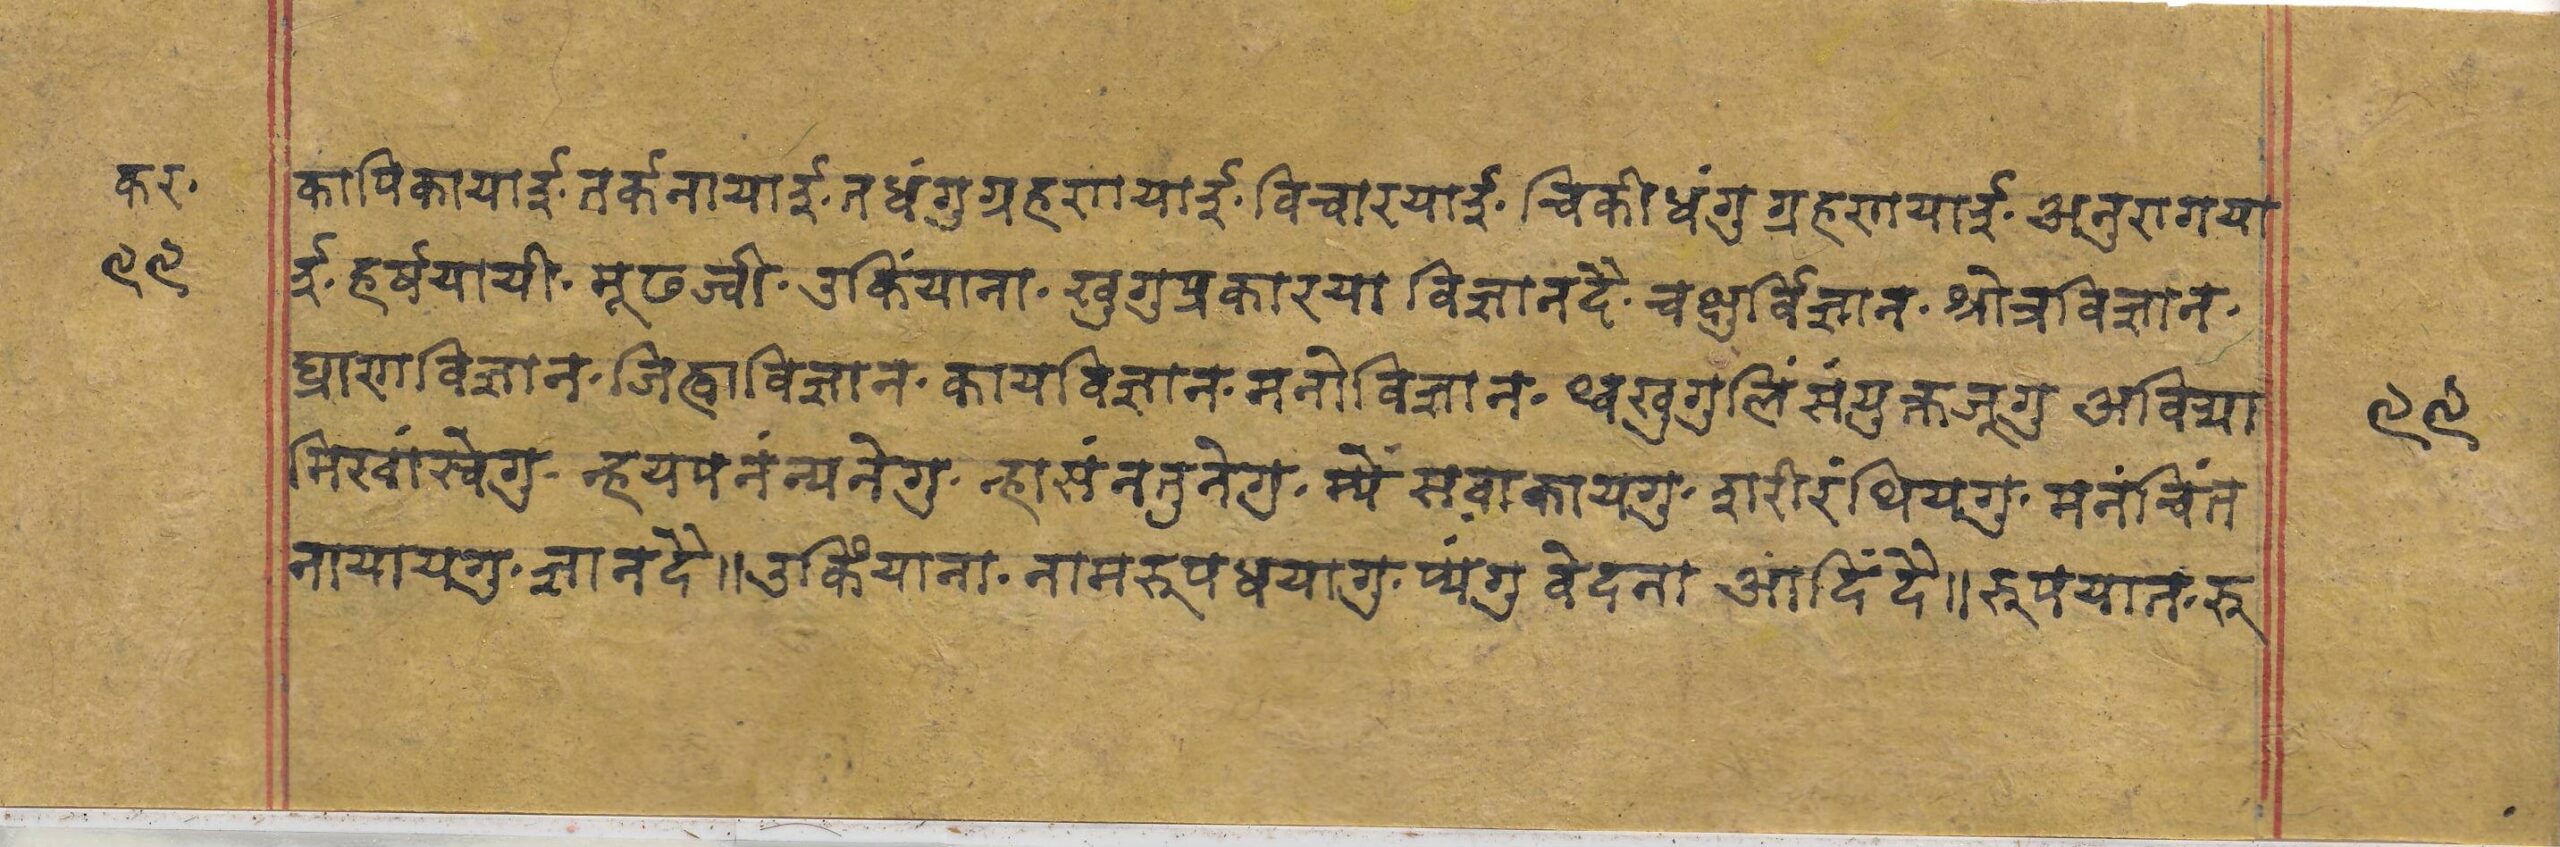 कर॰
९९
कापिकायाई॰ तर्कनायाई॰ तधंगु ग्रहणयाई॰ विचारयाई॰ चिकीधंगु ग्रहणयाई॰ अनुरागया
ई॰ हर्षयायी॰ मूढज्वी॰ उकिंयाना॰ खुगुप्रकारया विज्ञानदै॰ चक्षुर्विज्ञान॰ श्रोत्रविज्ञान॰
घ्राणविज्ञान॰ जिह्वाविज्ञान॰ कायविज्ञान॰ मनोविज्ञान॰ थ्वखुगुलिं संयुक्तजूगु अविद्या
मिखां स्वेगु॰ न्हयपनं न्यनेगु॰ न्हासंनतुनेगु॰ म्यें सवाकायगु॰ शरीरंथियगु॰ मनंचिंत
नायायगु॰ ज्ञानदै॥ उकिंयाना॰ नामरूपधयागु॰ प्यंगु वेदना आदिंदै॥ रूपयान॰ रू
९९